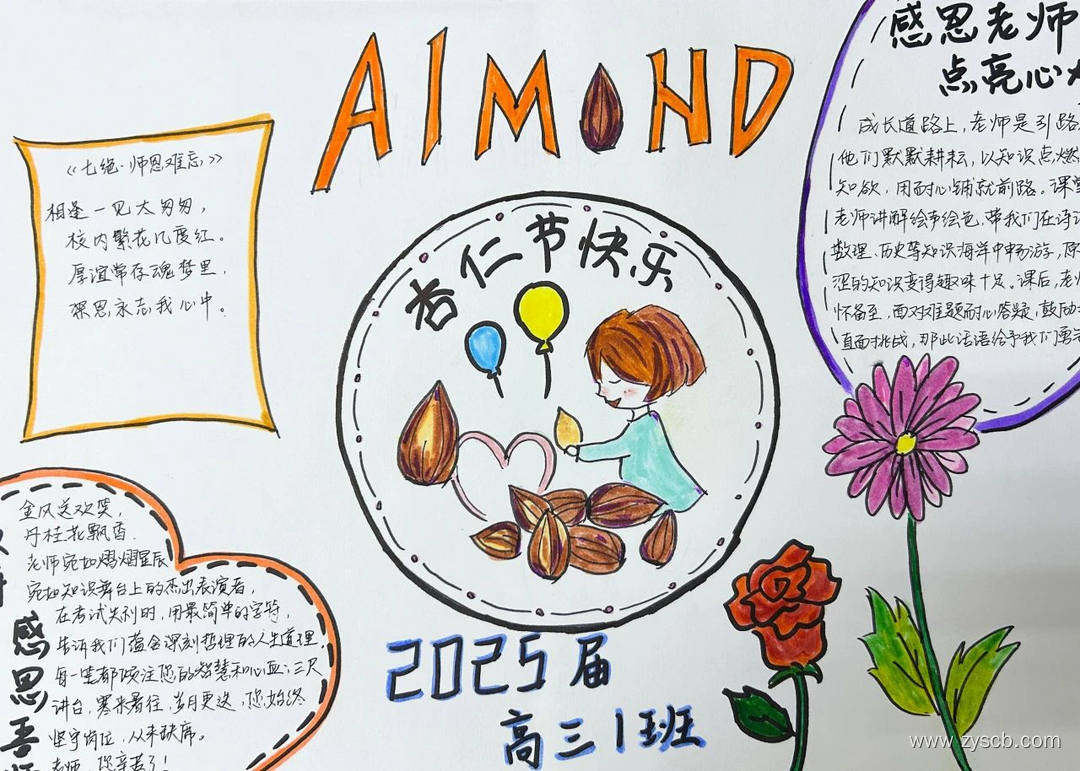 ALMOND
杏仁节快乐
《七绝·师恩难忘》
相逢一见太匆匆，
校内繁花几度红。
厚谊常存魂梦里，
深恩永志我心中。
感恩老师
点亮心
成长道路上，老师是引路
他们默默耕耘，以知识点燃
知欲，用耐心铺就前路。课堂
老师讲解绘声绘色，带我们在诗词
数理、历史等知识海洋中畅游，原
涩的知识变得趣味十足。课后，老师
怀备至，面对难题耐心答疑，鼓励
直面挑战，那些话语给予我们勇
金风送欢笑，
丹桂花飘香.
老师宛如熠熠星辰
宛如知识舞台上的杰出表演者，
在考试失利时，用最简单的字符，
告诉我们蕴含深刻哲理的人生道理，
每一笔都倾注您的智慧和心血；三尺
讲台，寒来暑往，岁月更迭，您始终
坚守岗位，从未缺席。
老师，您辛苦了！
感恩吾师
2025届
高三1班
www.zyscb.com